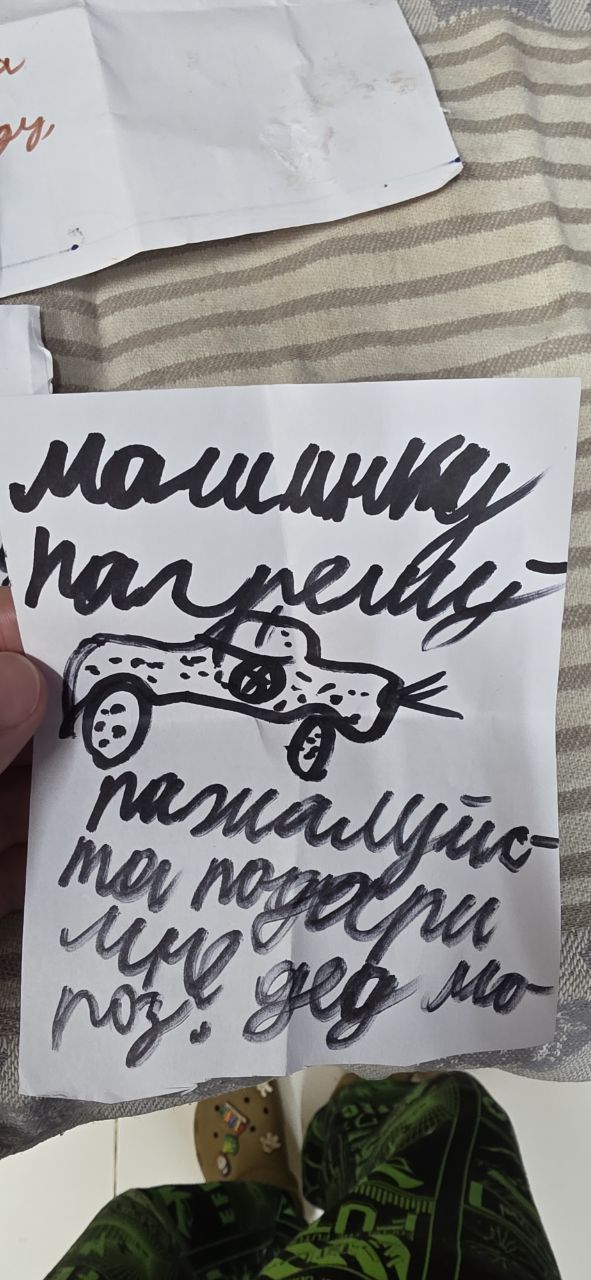 машинку
пажалуйс-
та подари
мне
роз! дед мо-